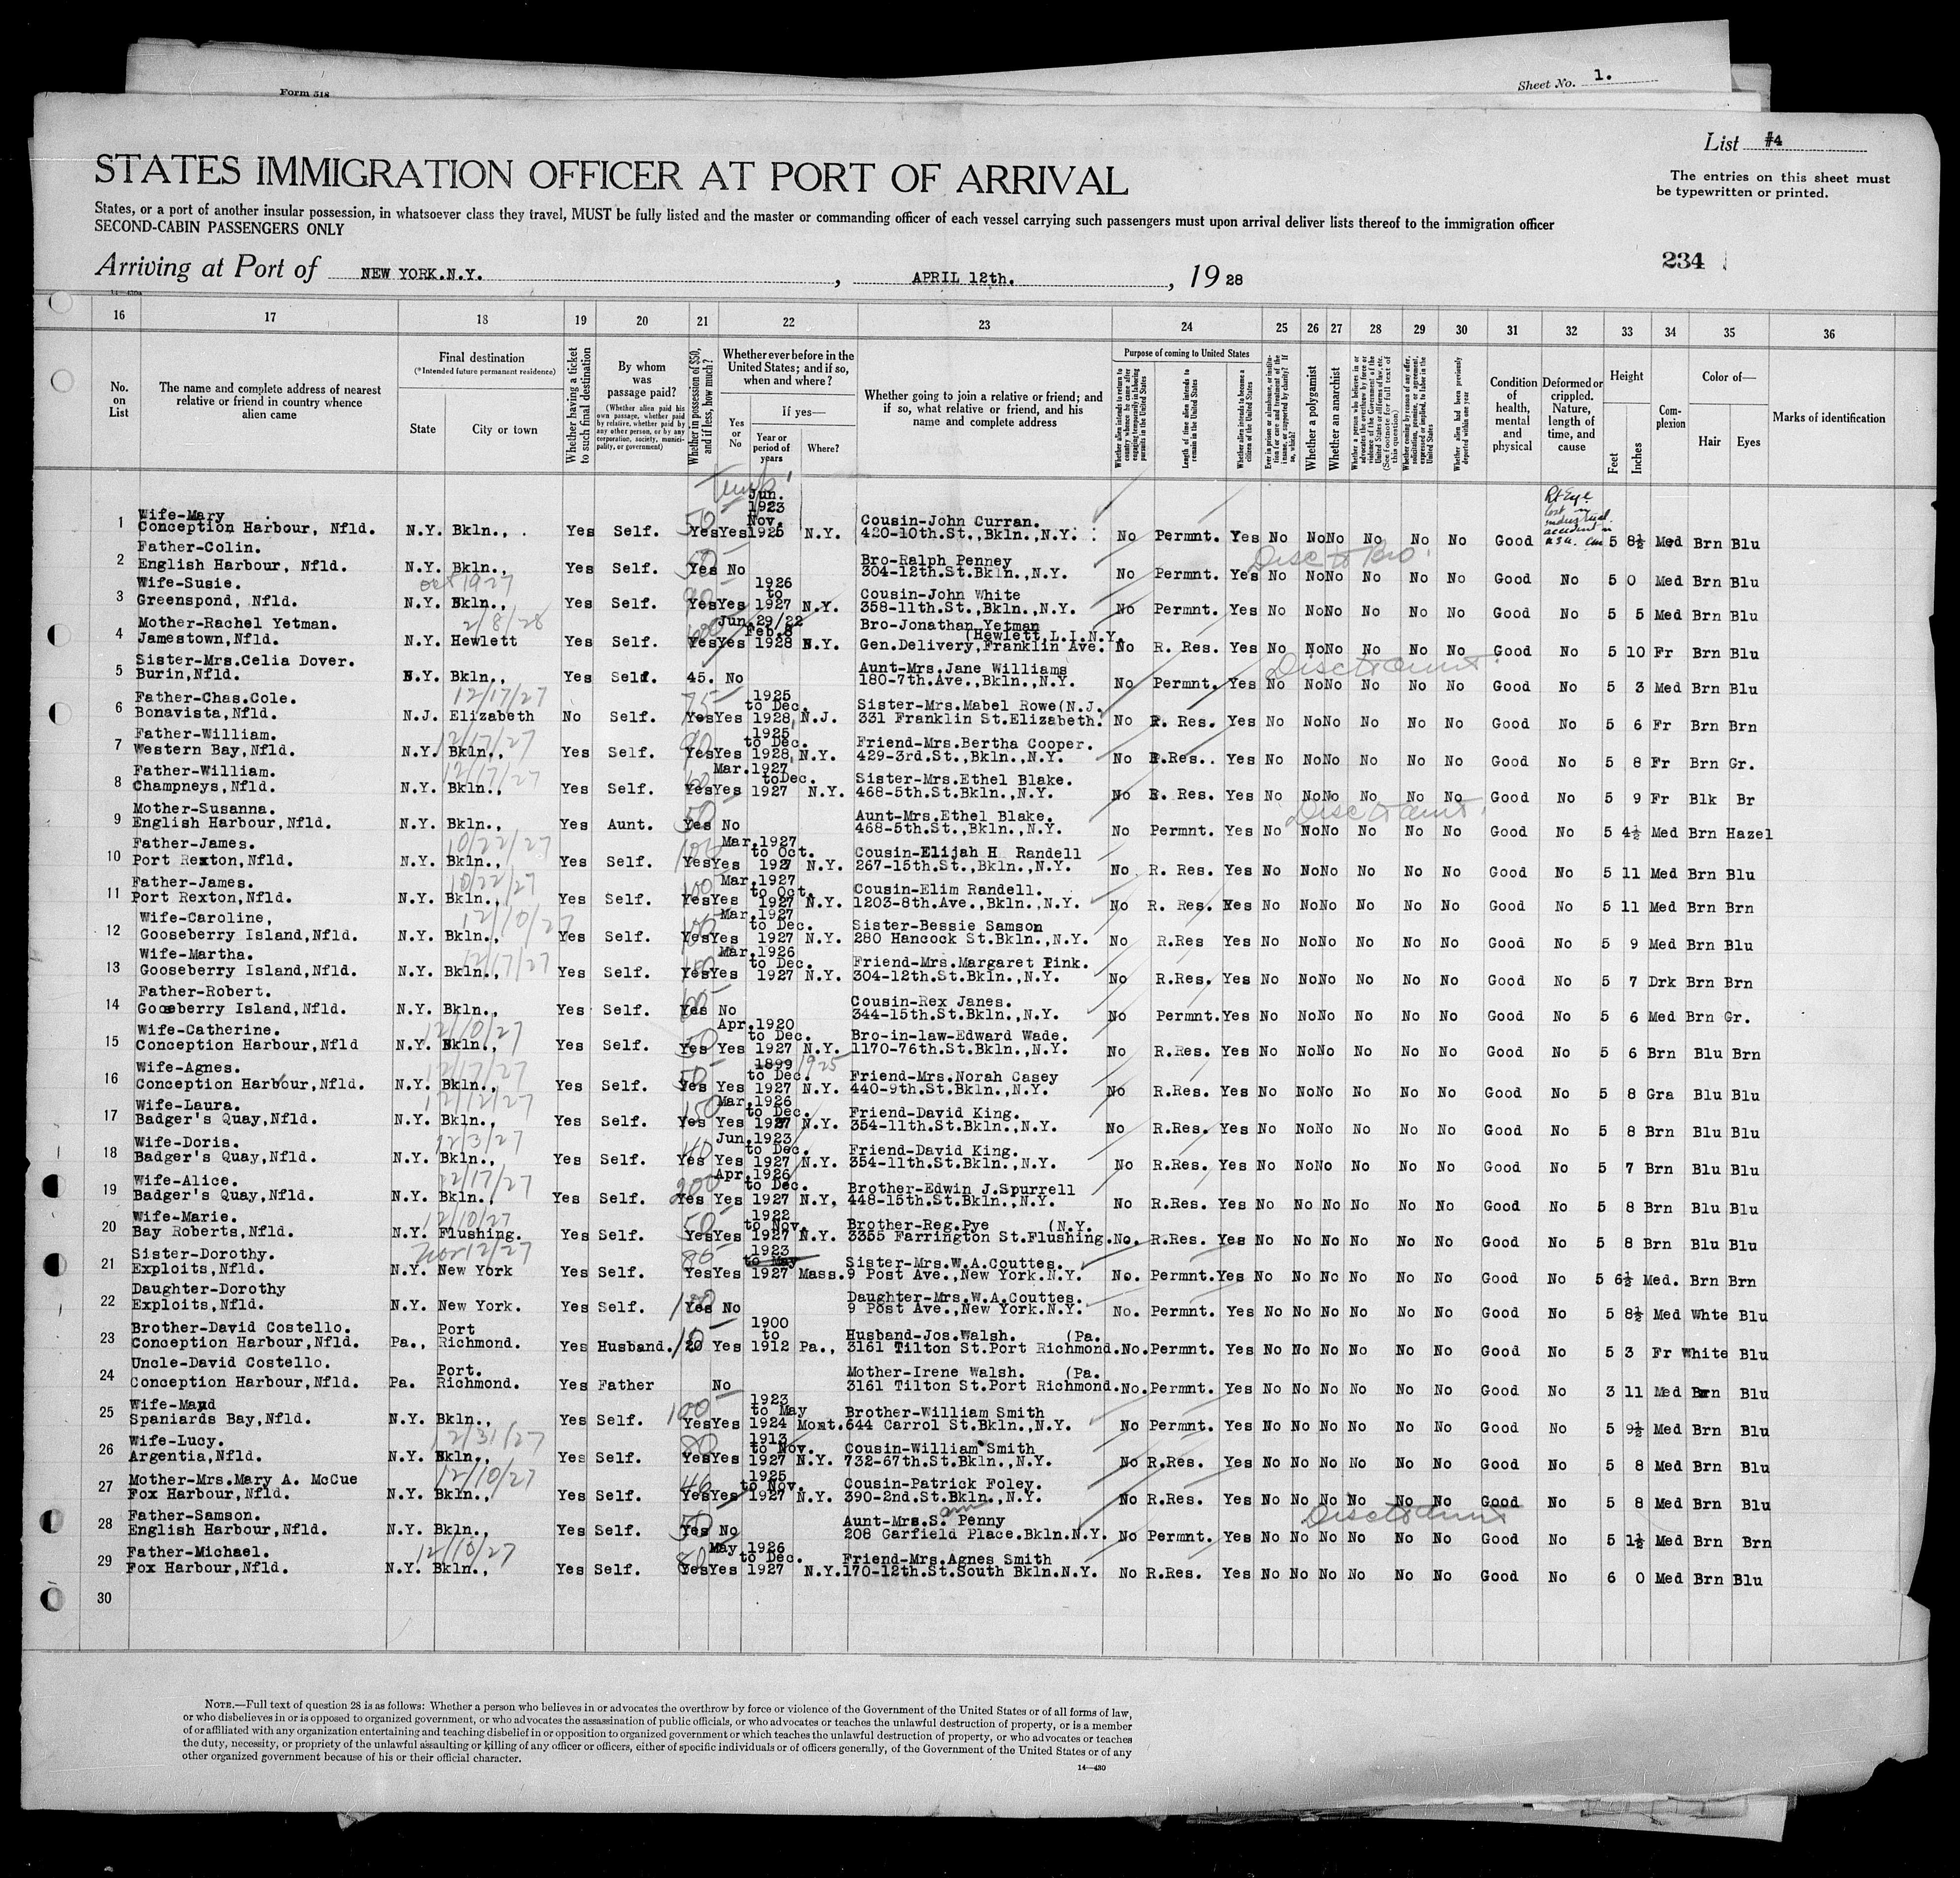 Form 518
Sheet No. 1.
List #4
STATES IMMIGRATION OFFICER AT PORT OF ARRIVAL
The entries on this sheet must
be typewritten or printed.
States, or a port of another insular possession, in whatsoever class they travel, MUST be fully listed and the master or commanding officer of each vessel carrying such passengers must upon arrival deliver lists thereof to the immigration officer
SECOND-CABIN PASSENGERS ONLY
234
Arriving at Port of NEW YORK.N.Y. , APRIL 12th. , 19 28
16 17 18 19 20 21 22 23 24 25 26 27 28 29 30 31 32 33 34 35 36
No. on List
The name and complete address of nearest relative or friend in country whence alien came
Final destination (*Intended future permanent residence)
State
City or town
Whether having a ticket to such final destination
By whom was passage paid?
(Whether alien paid his own passage, whether paid by relative, whether paid by any other person, or by any corporation, society, municipality, or government)
Whether in possession of $50, and if less, how much?
Whether ever before in the United States; and if so, when and where?
Yes or No
If yes—
Year or period of years
Where?
Whether going to join a relative or friend; and if so, what relative or friend, and his name and complete address
Purpose of coming to United States
Length of time alien intends to remain in the United States
Whether alien intends to become a citizen of the United States
Whether a polygamist
Whether an anarchist
Whether alien had been previously deported within one year
Condition of health, mental and physical
Deformed or crippled. Nature, length of time, and cause
Height
Feet
Inches
Complexion
Color of—
Hair
Eyes
Marks of identification
Temp'
Rt Eye lost in industrial accident in USA.
1 Wife-Mary Conception Harbour, Nfld. N.Y. Bkln., Yes Self. 50 Yes Yes Jun. 1923 Nov. 1925 N.Y. Cousin-John Curran. 420-10th.St.,Bkln.,N.Y. No Permnt. Yes No No No No No No Good 5 8½ Med Brn Blu
2 Father-Colin. English Harbour, Nfld. N.Y. Bkln., Yes Self. 50 Yes No Bro-Ralph Penney 304-12th.St.Bkln.,N.Y. No Permnt. Yes No No No No No No Good No 5 0 Med Brn Blu
Disc to Bro
Oct 1927
3 Wife-Susie. Greenspond, Nfld. N.Y. Bkln., Yes Self. 90 Yes Yes 1926 to 1927 N.Y. Cousin-John White 358-11th.St.,Bkln.,N.Y. No Permnt. Yes No No No No No No Good No 5 5 Med Brn Blu
2/8/28
4 Mother-Rachel Yetman. Jamestown,Nfld. N.Y. Hewlett Yes Self. Yes Yes Jun.29/22 Feb.8 1928 N.Y. Bro-Jonathan Yetman (Hewlett,L.I.N.Y. Gen.Delivery,Franklin Ave. No R. Res. Yes No No No No No No Good No 5 10 Fr Brn Blu
5 Sister-Mrs.Celia Dover. Burin,Nfld. N.Y. Bkln., Yes Self. 45. No Aunt-Mrs.Jane Williams 180-7th.Ave.,Bkln.,N.Y. No Permnt. Yes No No No No No No Good No 5 3 Med Brn Blu
Disc to aunt
12/17/27
6 Father-Chas.Cole. Bonavista,Nfld. N.J. Elizabeth No Self. 75 Yes Yes 1925 to Dec. 1928 N.J. Sister-Mrs.Mabel Rowe(N.J. 331 Franklin St.Elizabeth. No R. Res. Yes No No No No No No Good No 5 6 Fr Brn Brn
12/17/27
7 Father-William. Western Bay,Nfld. N.Y. Bkln., Yes Self. 90 Yes Yes 1925 to Dec. 1928 N.Y. Friend-Mrs.Bertha Cooper. 429-3rd.St.,Bkln.,N.Y. No R.Res.. Yes No No No No No No Good No 5 8 Fr Brn Gr.
12/17/27
8 Father-William. Champneys,Nfld. N.Y. Bkln., Yes Self. Yes Yes Mar.1927 to Dec. 1927 N.Y. Sister-Mrs.Ethel Blake. 468-5th.St.Bkln.,N.Y. No R. Res. Yes No No No No No No Good No 5 9 Fr Blk Br
9 Mother-Susanna. English Harbour,Nfld. N.Y. Bkln., Yes Aunt. 50 Yes No Aunt-Mrs.Ethel Blake. 468-5th.St.,Bkln.,N.Y. No Permnt. Yes No No No No No No Good No 5 4½ Med Brn Hazel
Disc to aunt
10/22/27
10 Father-James. Port Rexton,Nfld. N.Y. Bkln., Yes Self. Yes Yes Mar.1927 to Oct. 1927 N.Y. Cousin-Elijah H Randell 267-15th.St.,Bkln.,N.Y. No R. Res. Yes No No No No No No Good No 5 11 Med Brn Blu
10/22/27
11 Father-James. Port Rexton,Nfld. N.Y. Bkln., Yes Self. 100 Yes Yes Mar.1927 to Oct. 1927 N.Y. Cousin-Elim Randell. 1203-8th.Ave.,Bkln.,N.Y. No R. Res. Yes No No No No No No Good No 5 11 Med Brn Brn
12/10/27
12 Wife-Caroline, Gooseberry Island,Nfld. N.Y. Bkln., Yes Self. Yes Yes Mar.1927 to Dec. 1927 N.Y. Sister-Bessie Samson 280 Hancock St.Bkln.,N.Y. No R.Res Yes No No No No No No Good No 5 9 Med Brn Blu
12/17/27
13 Wife-Martha. Gooseberry Island,Nfld. N.Y. Bkln., Yes Self. Yes Yes Mar.1926 to Dec. 1927 N.Y. Friend-Mrs.Margaret Pink. 304-12th.St.Bkln.,N.Y. No R.Res. Yes No No No No No No Good No 5 7 Drk Brn Brn
14 Father-Robert. Gooseberry Island,Nfld. N.Y. Bkln., Yes Self. Yes No Cousin-Rex Janes. 344-15th.St.Bkln.,N.Y. No Permnt. Yes No No No No No No Good No 5 6 Med Brn Gr.
12/10/27
15 Wife-Catherine. Conception Harbour,Nfld N.Y. Bkln., Yes Self. 50 Yes Yes Apr.1920 to Dec. 1927 N.Y. Bro-in-law-Edward Wade. 1170-76th.St.Bkln.,N.Y. No R.Res. Yes No No No No No No Good No 5 6 Brn Blu Brn
12/17/27
16 Wife-Agnes. Conception Harbour,Nfld. N.Y. Bkln., Yes Self. 50 Yes Yes 1899 1925 to Dec. 1927 N.Y. Friend-Mrs.Norah Casey 440-9th.St.Bkln.,N.Y. No R.Res. Yes No No No No No No Good No 5 8 Gra Blu Blu
12/12/27
17 Wife-Laura. Badger's Quay,Nfld. N.Y. Bkln., Yes Self. 150 Yes Yes Mar.1926 to Dec. 1927 N.Y. Friend-David King. 354-11th.St.Bkln.,N.Y. No R.Res. Yes No No No No No No Good No 5 8 Brn Blu Blu
12/3/27
18 Wife-Doris. Badger's Quay,Nfld. N.Y. Bkln., Yes Self. 40 Yes Yes Jun.1923 to Dec. 1927 N.Y. Friend-David King. 354-11th.St.Bkln.,N.Y. No R.Res. Yes No No No No No No Good No 5 7 Brn Blu Blu
12/17/27
19 Wife-Alice. Badger's Quay,Nfld. N.Y. Bkln., Yes Self. 200 Yes Yes Apr.1926 to Dec. 1927 N.Y. Brother-Edwin J.Spurrell 448-15th.St.Bkln.,N.Y. No R.Res. Yes No No No No No No Good No 5 8 Brn Blu Blu
12/10/27
20 Wife-Marie. Bay Roberts,Nfld. N.Y. Flushing. Yes Self. 50 Yes Yes 1922 to Nov. 1927 N.Y. Brother-Reg.Pye (N.Y. 3355 Farrington St.Flushing. No. R.Res. Yes No No No No No No Good No 5 8 Brn Blu Blu
Nov 12/27
21 Sister-Dorothy. Exploits,Nfld. N.Y. New York Yes Self. 85 Yes Yes 1923 to May 1927 Mass. Sister-Mrs.W.A.Couttes. 9 Post Ave.,New York.N.Y. No. Permnt. Yes No No No No No No Good No 5 6½ Med. Brn Brn
22 Daughter-Dorothy Exploits,Nfld. N.Y. New York. Yes Self. 100 Yes No Daughter-Mrs.W.A.Couttes. 9 Post Ave.,New York.N.Y. No. Permnt. Yes No No No No No No Good No 5 8½ Med Whte Blu
23 Brother-David Costello. Conception Harbour,Nfld. Pa., Port Richmond. Yes Husband. 10 20 Yes 1900 to 1912 Pa., Husband-Jos.Walsh. (Pa. 3161 Tilton St.Port Richmond. No. Permnt. Yes No No No No No No Good No 5 3 Fr White Blu
24 Uncle-David Costello. Conception Harbour,Nfld. Pa. Port. Richmond. Yes Father No Mother-Irene Walsh. (Pa. 3161 Tilton St.Port Richmond. No. Permnt. Yes No No No No No No Good No 3 11 Med Brn Blu
25 Wife-Maud Spaniards Bay,Nfld. N.Y. Bkln., Yes Self. 100 Yes Yes 1923 to May 1924 Mont. Brother-William Smith 644 Carrol St.Bkln.,N.Y. No Permnt. Yes No No No No No No Good No 5 9½ Med Brn Blu
12/31/27
26 Wife-Lucy. Argentia,Nfld. N.Y. Bkln., Yes Self. 80 Yes Yes 1913 to Nov. 1927 N.Y. Cousin-William Smith 732-67th.St.Bkln.,N.Y. No R.Res. Yes No No No No No No Good No 5 8 Med Brn Blu
12/10/27
27 Mother-Mrs.Mary A. McCue Fox Harbour,Nfld. N.Y. Bkln., Yes Self. 46 Yes Yes 1925 to Nov. 1927 N.Y. Cousin-Patrick Foley. 390-2nd.St.Bkln.,N.Y. No R.Res. Yes No No No No No No Good No 5 8 Med Brn Blu
28 Father-Samson. English Harbour,Nfld. N.Y. Bkln., Yes Self. 50 Yes No Aunt-Mrs.S. Penny 208 Garfield Place.Bkln.N.Y. No Permnt. Yes No No No No No No Good No 5 1½ Med Brn Brn
Disc to Aunt
12/10/27
29 Father-Michael. Fox Harbour,Nfld. N.Y. Bkln., Yes Self. 80 Yes Yes May 1926 to Dec. 1927 N.Y. Friend-Mrs.Agnes Smith 170-12th.St.South Bkln.N.Y. No R.Res. Yes No No No No No No Good No 6 0 Med Brn Blu
30
NOTE.—Full text of question 28 is as follows: Whether a person who believes in or advocates the overthrow by force or violence of the Government of the United States or of all forms of law,
or who disbelieves in or is opposed to organized government, or who advocates the assassination of public officials, or who advocates or teaches the unlawful destruction of property, or is a member
of or affiliated with any organization entertaining and teaching disbelief in or opposition to organized government or which teaches the unlawful destruction of property, or who advocates or teaches
the duty, necessity, or propriety of the unlawful assaulting or killing of any officer or officers, either of specific individuals or of officers generally, of the Government of the United States or of any
other organized government because of his or their official character.
14—430